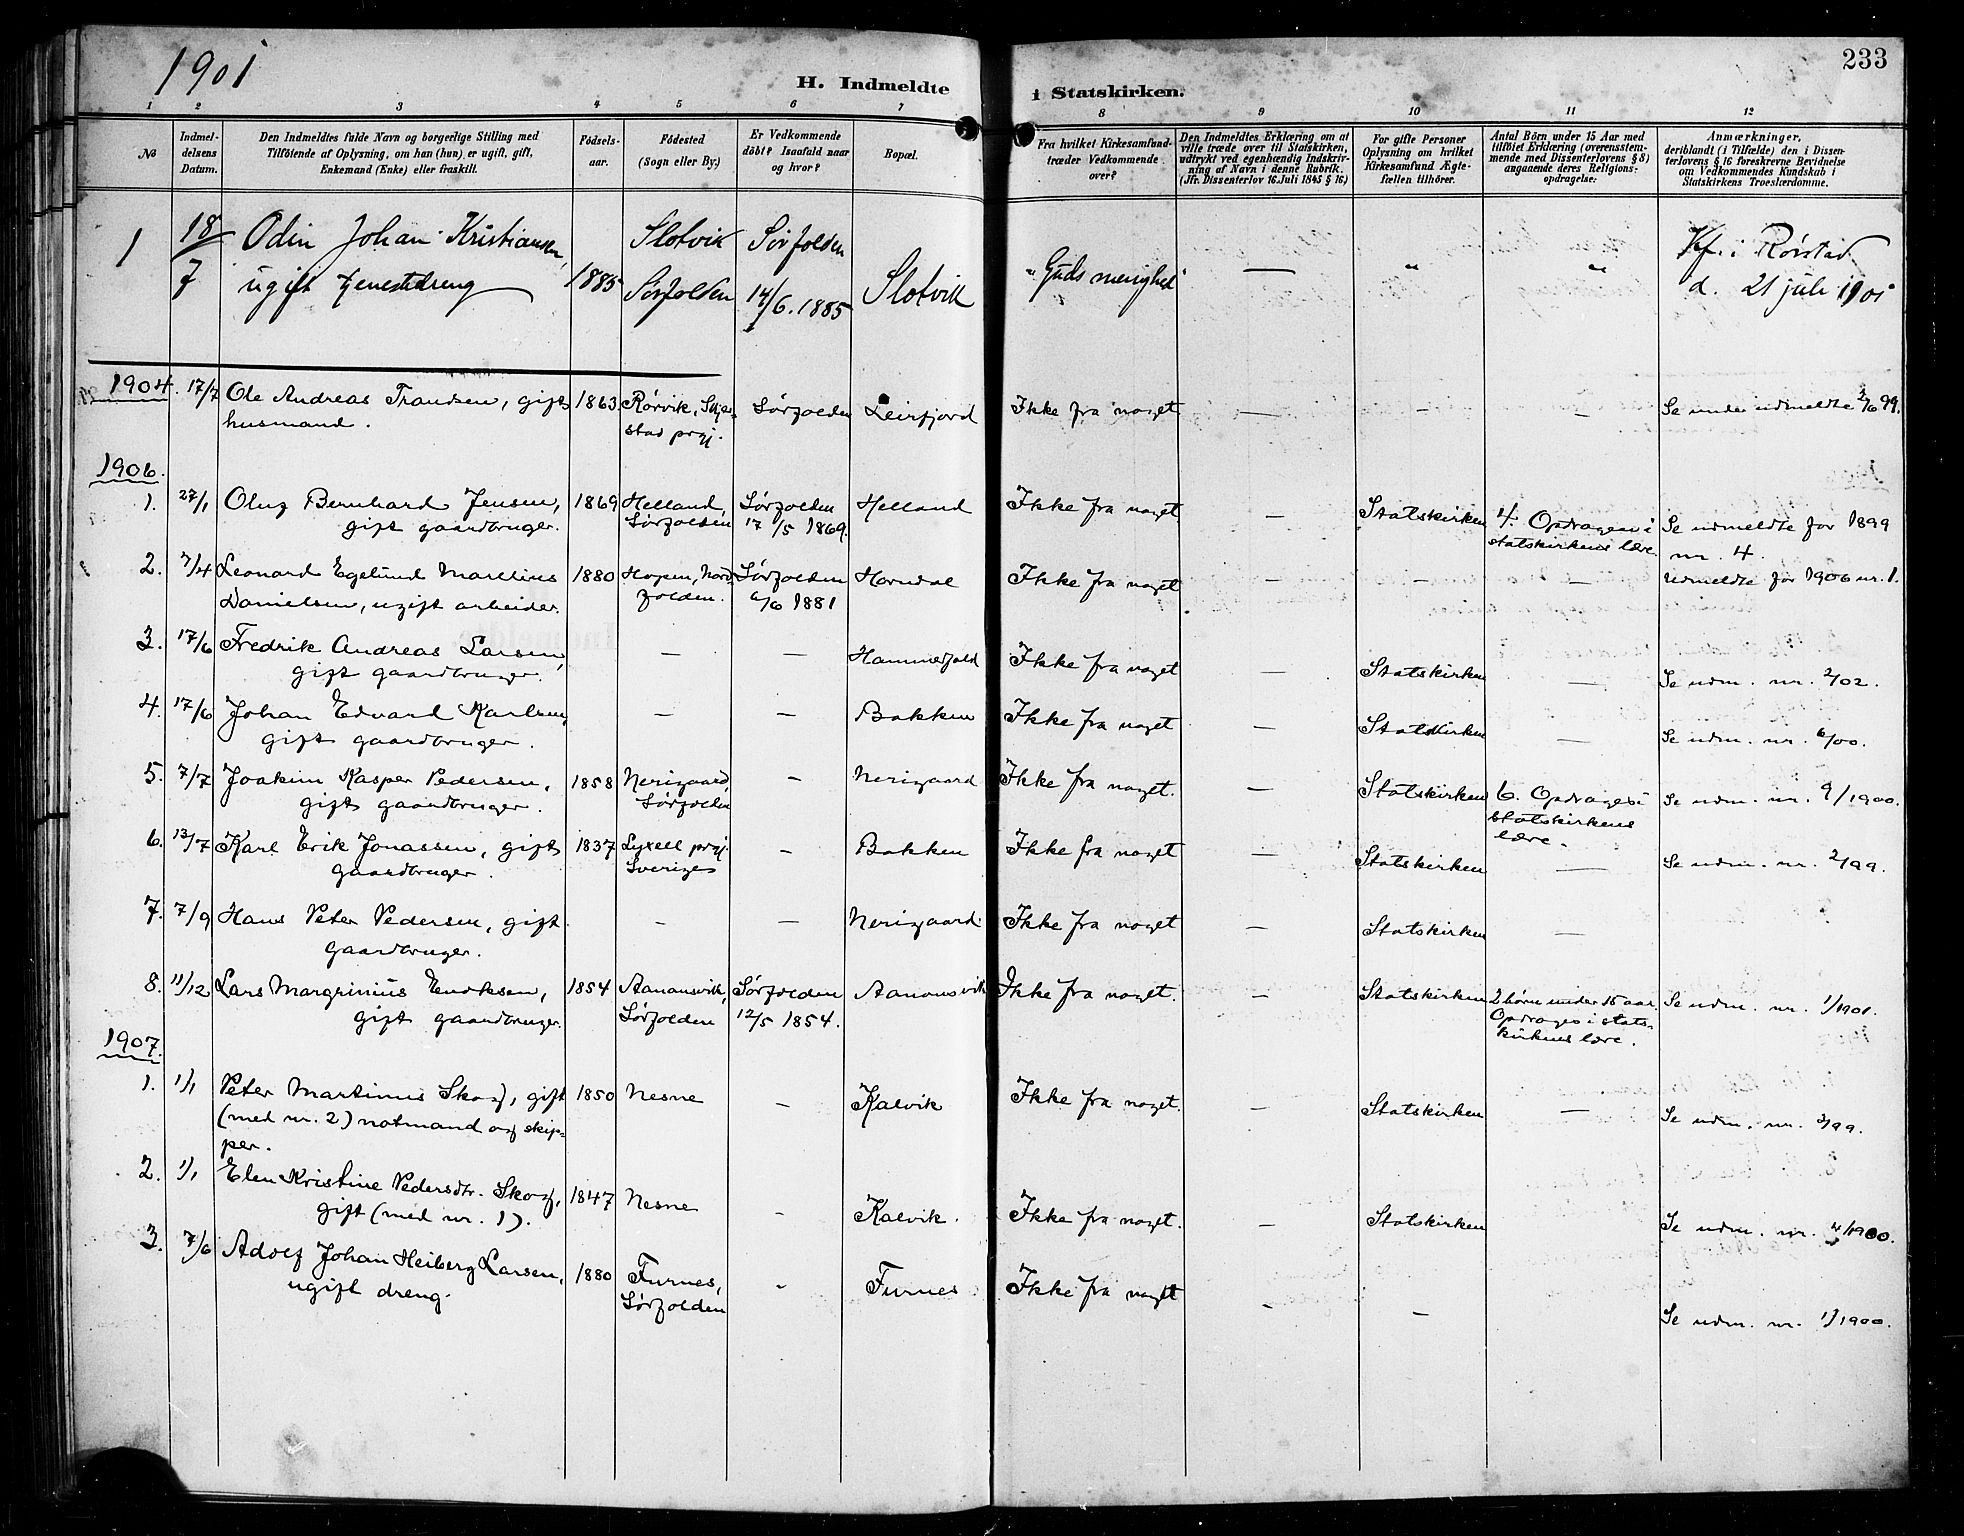 1901
233
H. Indmeldte
i Statskirken.
1 2 3 4 5 6 7 8 9 10 11 12
No
Indmel-
delsens
Datum.
Den Indmeldtes fulde Navn og borgerlige Stilling med
Tilföiende af Oplysning, om han (hun) er ugift, gift,
Enkemand (Enke) eller fraskilt.
Födsels-
aar.
Födested
(Sogn eller By.)
Er Vedkommende
döbt? Isaafald naar
og hvor?
Bopæl.
Fra hvilket Kirkesamfund
træder Vedkommende
over?
Den Indmeldtes Erklæring om at
ville træde over til Statskirken,
udtrykt ved egenhændig Indskriv-
ning af Navn i denne Rubrik.
(Jfr. Dissenterlov 16. Juli 1845 § 16)
For gifte Personer
Oplysning om hvilket
Kirkesamfund Ægte-
fællen tilhörer.
Antal Börn under 15 Aar med
tilföiet Erklæring (overensstem-
mende med Dissenterlovens § 8)
angaaende deres Religions-
opdragelse.
Anmærkninger,
deriblandt (i Tilfælde) den i Dissen-
terlovens § 16 foreskrevne Bevidnelse
om Vedkommendes Kundskab i
Statskirkens Troeslærdomme.
1 18/7 Odin Johan Kristiansen,
ugift tjenestedreng
1885
Slotvik
Sørfolden
Sørfolden
14/6. 1885
Slotvik
"Guds menighed"
— " "
Kf. i Rørstad
d. 21 juli 1901
1904. 17/7 Ole Andreas Trandsen, gift
husmand.
1863
Rørvik, Skjer-
stad prgj.
Sørfolden
Leirfjord
Ikke fra noget
— - -
Se under udmeldte 2/6 99.
1906.
1. 27/1 Oluf Bernhard Jensen,
gift gaardbruger.
1869
Helland,
Sørfolden
Sørfolden
17/5 1869.
Helland
Ikke fra noget
—
Statskirken
4. Opdrages i
statskirkens lære.
Se udmeldte for 1899
nr. 4.
2. 7/4 Leonard Egelund Marelius
Danielsen, ugift arbeider.
1880
Hopen, Nord-
folden.
Sørfolden
6/6 1881
Horndal
Ikke fra noget
— - —
Udmeldte for 1906 nr. 1.
3. 17/6 Fredrik Andreas Larsen,
gift gaardbruger.
— —
Hammerfald
Ikke fra noget
—
Statskirken
—
Se udm. nr. 2/02.
4. 17/6 Johan Edvard Karlsen,
gift gaardbruger.
— —
Bakken
Ikke fra noget
—
Statskirken
—
Se udm. nr. 6/00.
5. 7/7 Joakim Kasper Pedersen,
gift gaardbruger.
1858
Nerigaard,
Sørfolden
-
Nerigaard
Ikke fra noget.
—
Statskirken
6. Opdrages i
statskirkens
lære.
Se udm. nr. 9/1900.
6. 13/7 Karl Erik Jonassen, gift
gaardbruger.
1837
Lyxell prgj.
Sverige
-
Bakken
Ikke fra noget
—
Statskirken
—
Se udm. nr. 2/99.
7. 7/9 Hans Peter Pedersen, gift
gaardbruger.
- —
Nerigaard.
Ikke fra noget
—
Statskirken
—
8. 11/12 Lars Margrinius Eriksen,
gift gaardbruger.
1854
Aanonsvik,
Sørfolden
Sørfolden
12/5 1854.
Aanonsvik
Ikke fra noget.
—
Statskirken
2 børn under 15 aar.
Opdrages i stats-
kirkens lære.
Se udm. nr. 1/1901.
1907.
1. 1/1 Peter Martinus Skog, gift
(med nr. 2) notmand og skip-
per.
1850
Nesne
-
Kalvik
Ikke fra noget.
—
Statskirken
—
Se udm. nr. 3/99.
2. 1/1 Elen Kristine Pedersdtr. Skog,
gift (med nr. 1).
1847
Nesne
-
Kalvik.
Ikke fra noget.
—
Statskirken
Se udm. nr. 4/1900.
3. 7/6 Adolf Johan Heiberg Larsen,
ugift dreng.
1880
Furnes,
Sørfolden
-
Furnes
Ikke fra noget
- —
Se udm. nr. 1/1900.